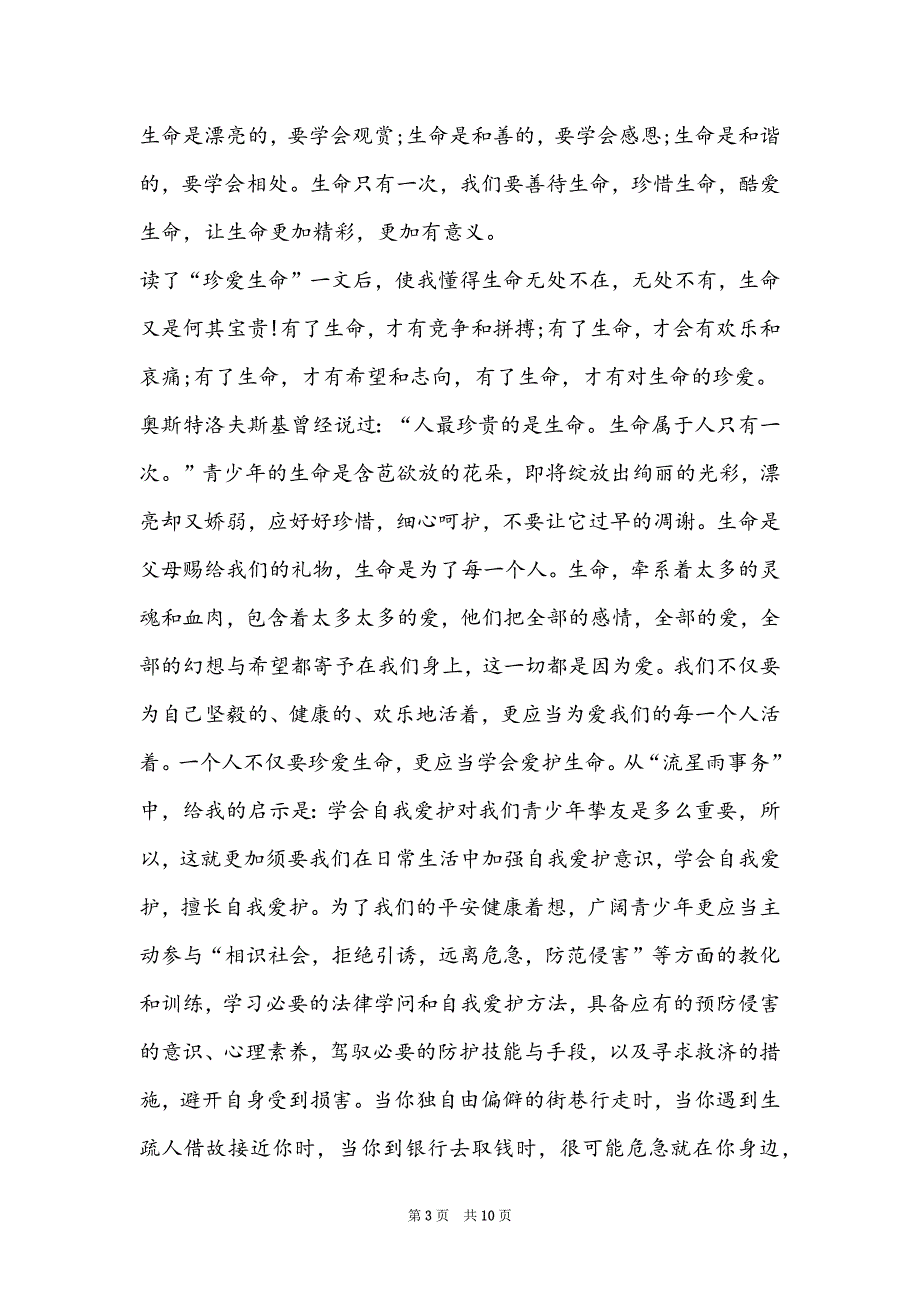 生命是漂亮的，要学会观赏;生命是和善的，要学会感恩;生命是和谐
的，要学会相处。生命只有一次，我们要善待生命，珍惜生命，酷爱
生命，让生命更加精彩，更加有意义。
读了“珍爱生命”一文后，使我懂得生命无处不在，无处不有，生命
又是何其宝贵!有了生命，才有竞争和拼搏;有了生命，才会有欢乐和
哀痛;有了生命，才有希望和志向，有了生命，才有对生命的珍爱。
奥斯特洛夫斯基曾经说过：“人最珍贵的是生命。生命属于人只有一
次。”青少年的生命是含苞欲放的花朵，即将绽放出绚丽的光彩，漂
亮却又娇弱，应好好珍惜，细心呵护，不要让它过早的凋谢。生命是
父母赐给我们的礼物，生命是为了每一个人。生命，牵系着太多的灵
魂和血肉，包含着太多太多的爱，他们把全部的感情，全部的爱，全
部的幻想与希望都寄予在我们身上，这一切都是因为爱。我们不仅要
为自己坚毅的、健康的、欢乐地活着，更应当为爱我们的每一个人活
着。一个人不仅要珍爱生命，更应当学会爱护生命。从“流星雨事务”
中，给我的启示是：学会自我爱护对我们青少年挚友是多么重要，所
以，这就更加须要我们在日常生活中加强自我爱护意识，学会自我爱
护，擅长自我爱护。为了我们的平安健康着想，广阔青少年更应当主
动参与“相识社会，拒绝引诱，远离危急，防范侵害”等方面的教化
和训练，学习必要的法律学问和自我爱护方法，具备应有的预防侵害
的意识、心理素养，驾驭必要的防护技能与手段，以及寻求救济的措
施，避开自身受到损害。当你独自由偏僻的街巷行走时，当你遇到生
疏人借故接近你时，当你到银行去取钱时，很可能危急就在你身边，
第 3 页 共 10 页